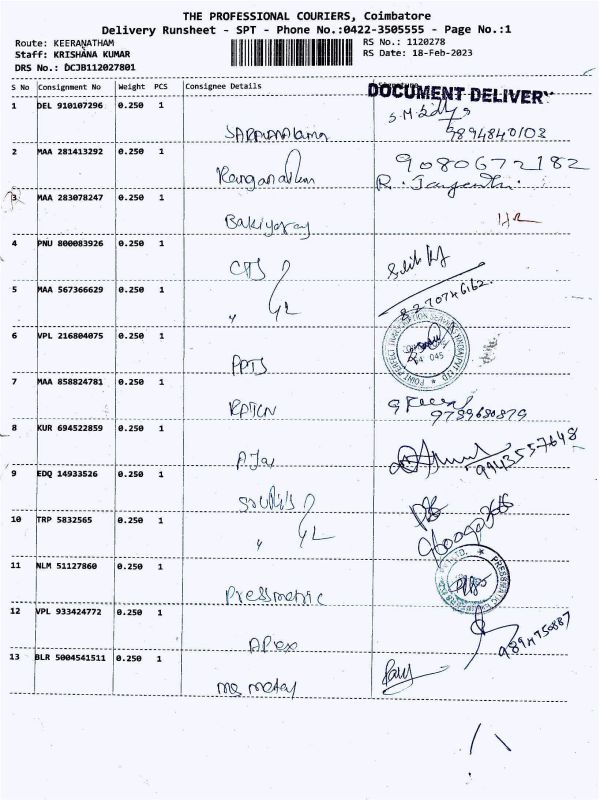 THE PROFESSIONAL COURIERS, Coimbatore
Delivery Runsheet - SPT - Phone No.:0422-3505555 - Page No.:1
Route: KEERANATHAM
RS No.: 1120278
Staff: KRISHANA KUMAR
RS Date: 18-Feb-2023
DRS No.: DCJB112027801
S No Consignment No Weight PCS Consignee Details
DOCUMENT DELIVERY
1 DEL 910107296 0.250 1
9894840102
2 MAA 281413292 0.250 1 Ranganathan
9080672182
R. Jayanthi
3 MAA 283078247 0.250 1 Bakiyaraj
4 PNU 800083926 0.250 1 CTS
5 MAA 567366629 0.250 1 "
8270746162
6 VPL 216804075 0.250 1 PPTS
7 MAA 858824781 0.250 1
9789680879
8 KUR 694522859 0.250 1 AJay
9943557648
9 EDQ 14933526 0.250 1
10 TRP 5832565 0.250 1 "
11 NLM 51127860 0.250 1 Pressmatric
12 VPL 933424772 0.250 1 APex
9894750887
13 BLR 5004541511 0.250 1